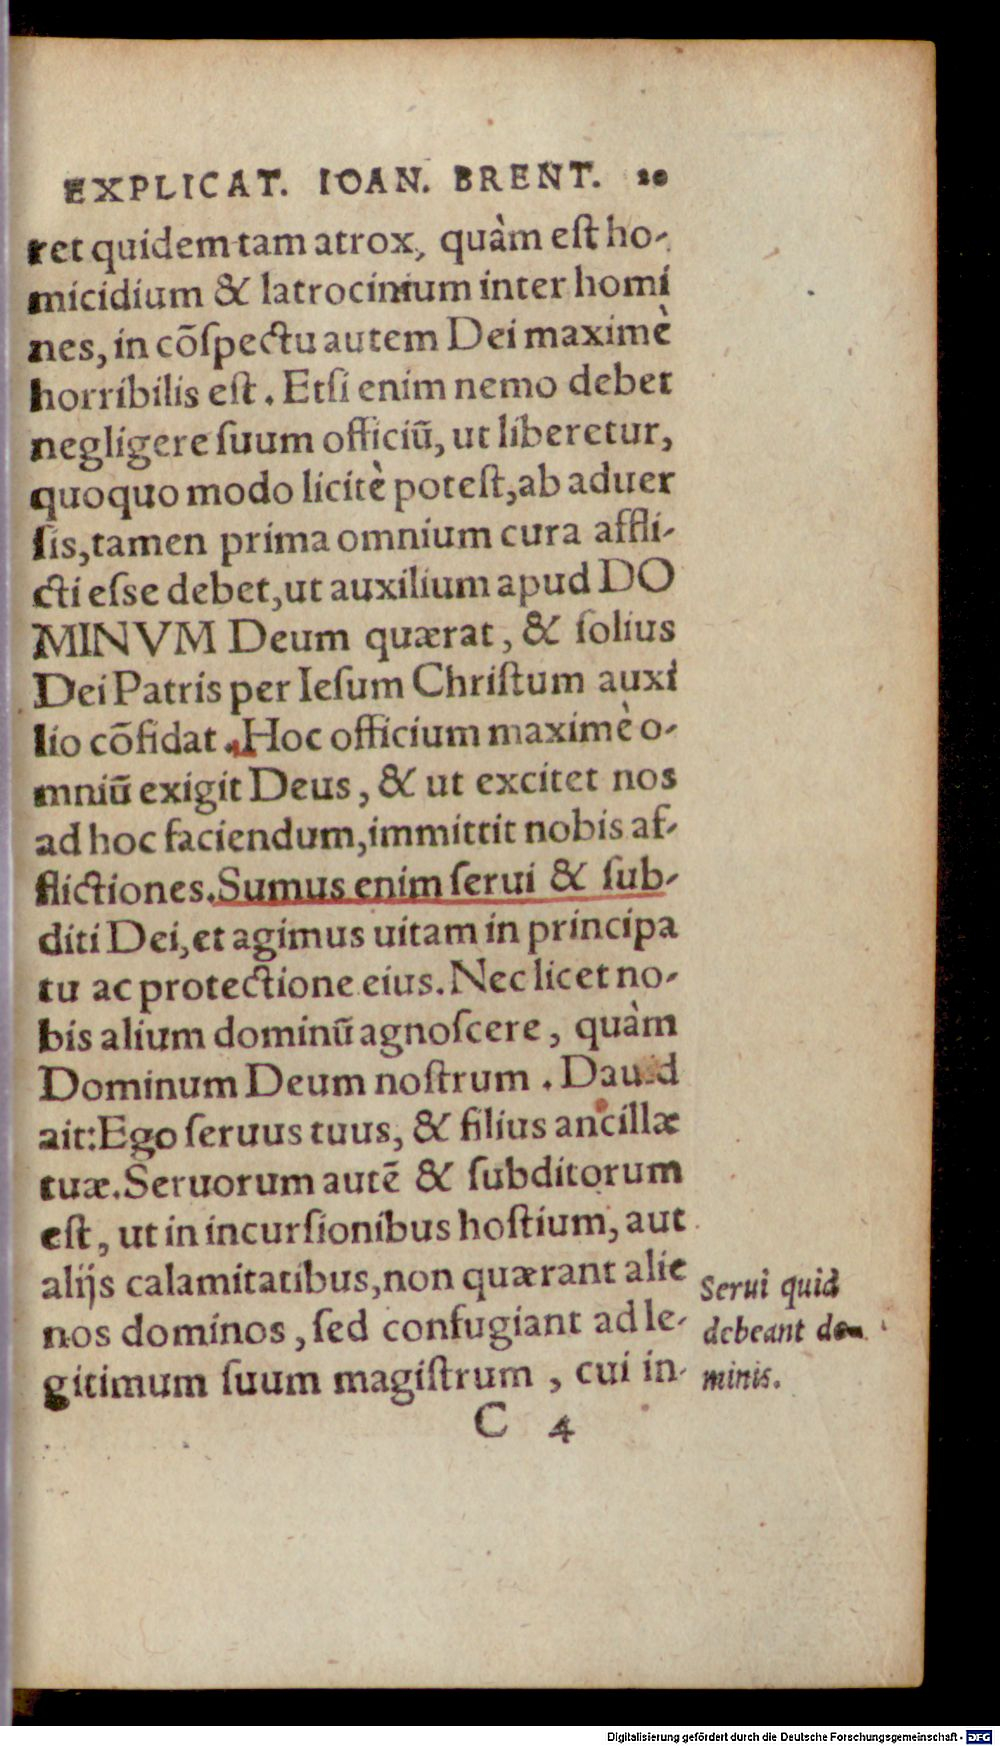 EXPLICAT. IOAN. BRENT. 20
ret quidem tam atrox, quàm eſt ho-
micidium & latrocinium inter homi
nes, in cõſpectu autem Dei maximè
horribilis eſt. Etſi enim nemo debet
negligere ſuum officiũ, ut liberetur,
quoquo modo licitè poteſt, ab aduer
ſis, tamen prima omnium cura affli-
cti eſse debet, ut auxilium apud DO
MINVM Deum quærat, & ſolius
Dei Patris per Ieſum Chriſtum auxi
lio cõfidat. Hoc officium maximè o-
mniũ exigit Deus, & ut excitet nos
ad hoc faciendum, immittit nobis af-
flictiones. Sumus enim ſerui & ſub-
diti Dei, et agimus uitam in principa
tu ac protectione eius. Nec licet no-
bis alium dominũ agnoſcere, quàm
Dominum Deum noſtrum. Dauid
ait: Ego ſeruus tuus, & filius ancillæ
tuæ. Seruorum autẽ & ſubditorum
eſt, ut in incurſionibus hoſtium, aut
alijs calamitatibus, non quærant alie
nos dominos, ſed confugiant ad le-
gitimum ſuum magiſtrum, cui in-
Serui quid
debeant do-
minis.
C 4
Digitalisierung gefördert durch die Deutsche Forschungsgemeinschaft - DFG